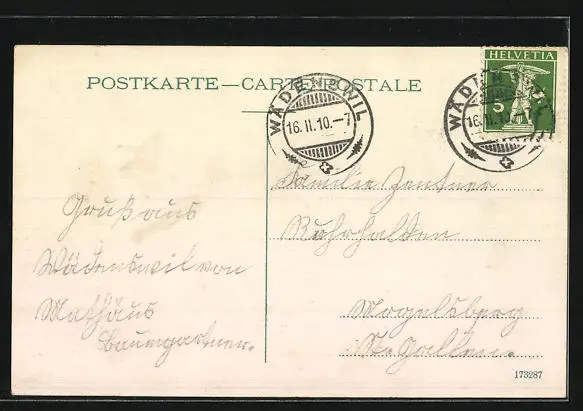 POSTKARTE — CARTE POSTALE
HELVETIA
5
WÄDENSWIL
16.II.10.–7
WÄDEN
16.II.1
Gruß aus
Wädensweil von
Mathäus
Baumgartner.
Familie Zentner
Ruhrhalden
Mogelsberg
St. Gallen.
173287